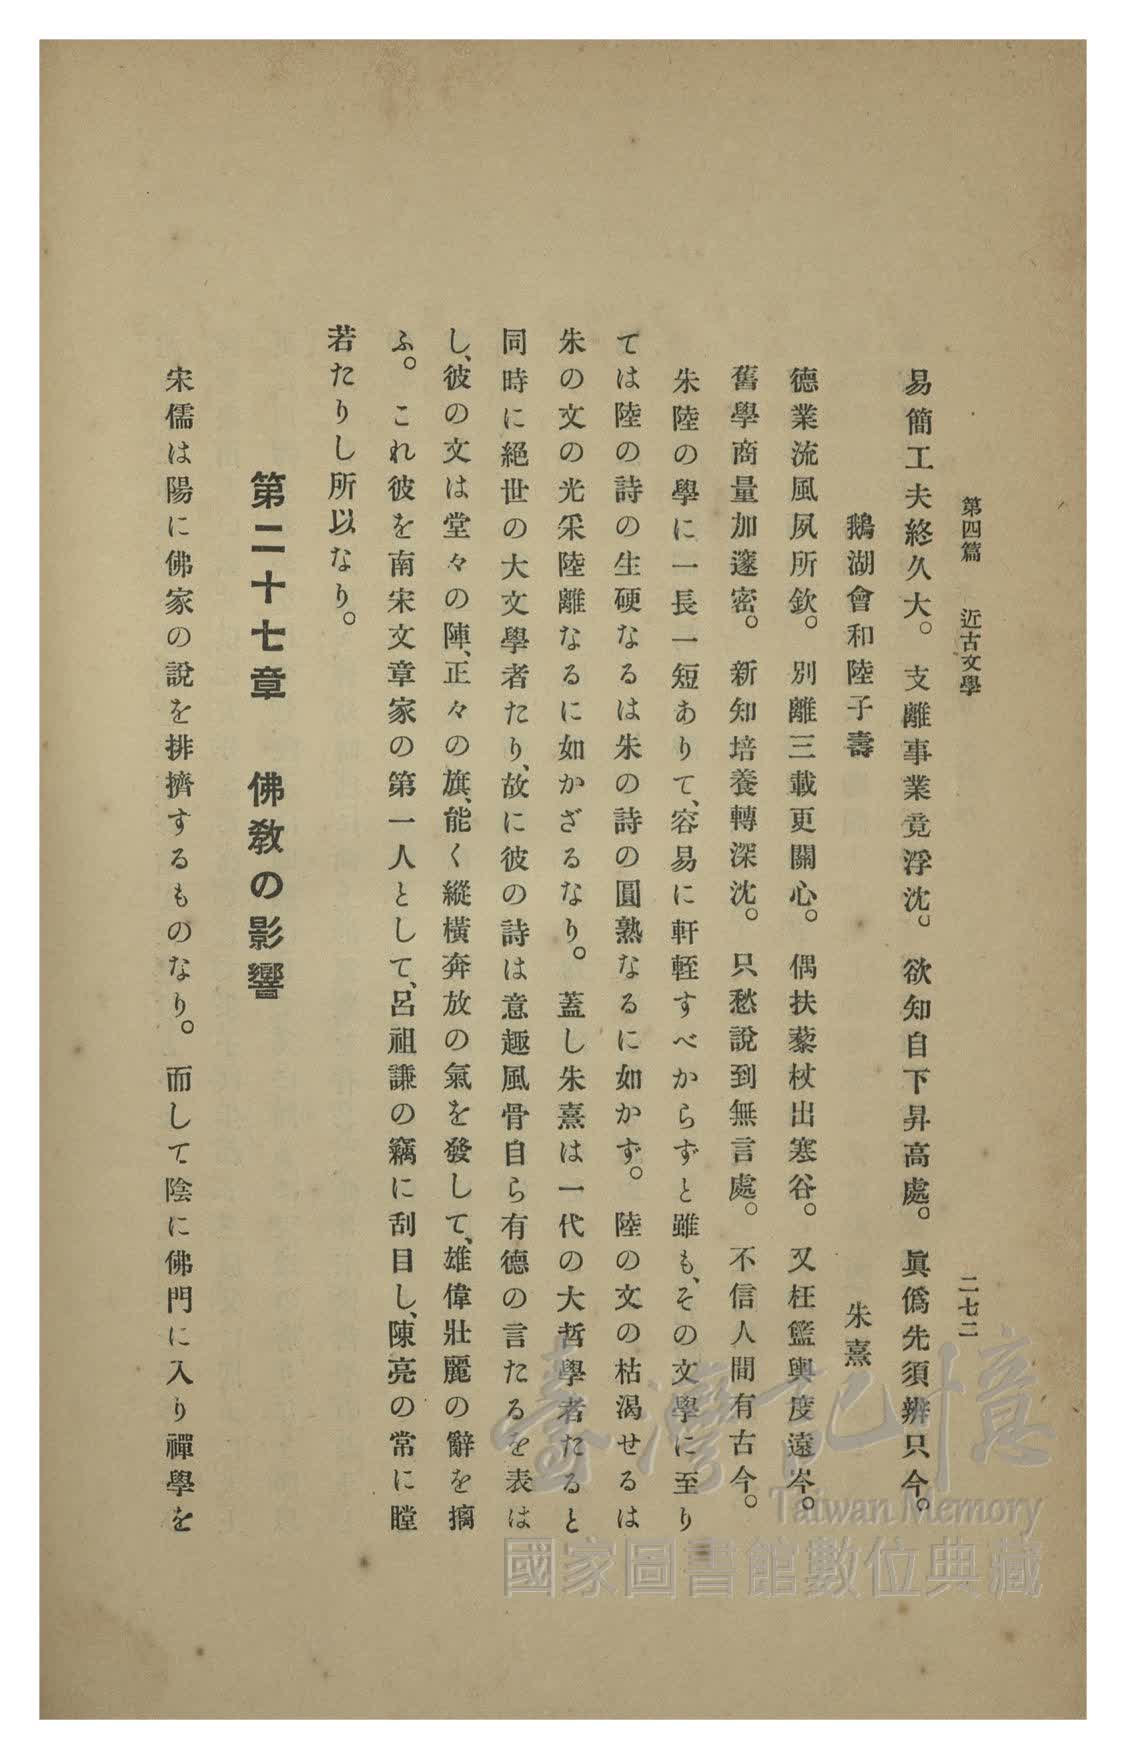 第四篇　近古文學　二七二
易簡工夫終久大。支離事業竟浮沈。欲知自下昇高處。眞僞先須辨只今。
鵝湖會和陸子壽　朱熹
德業流風夙所欽。別離三載更關心。偶扶藜杖出寒谷。又枉籃輿度遠岑。
舊學商量加邃密。新知培養轉深沈。只愁說到無言處。不信人間有古今。
朱陸の學に一長一短ありて、容易に軒輊すべからずと雖も、その文學に至り
ては陸の詩の生硬なるは朱の詩の圓熟なるに如かず。陸の文の枯渴せるは
朱の文の光采陸離なるに如かざるなり。蓋し朱熹は一代の大哲學者たると
同時に絕世の大文學者たり、故に彼の詩は意趣風骨自ら有德の言たるを表は
し、彼の文は堂々の陣、正々の旗、能く縱橫奔放の氣を發して、雄偉壯麗の辭を摛
ふ。これ彼を南宋文章家の第一人として、呂祖謙の竊に刮目し、陳亮の常に瞠
若たりし所以なり。
第二十七章　佛敎の影響
宋儒は陽に佛家の說を排擠するものなり。而して陰に佛門に入り禪學を
臺灣記憶
Taiwan Memory
國家圖書館數位典藏